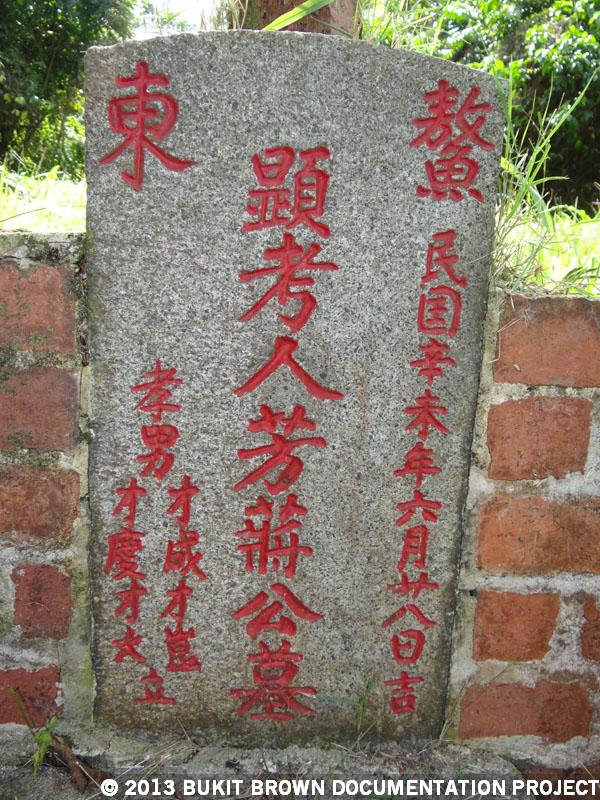 鰲東
民囯辛未年六月廿八日吉
顕考人芳蔣公墓
孝男
才成才崑
才慶才大
立
© 2013 BUKIT BROWN DOCUMENTATION PROJECT